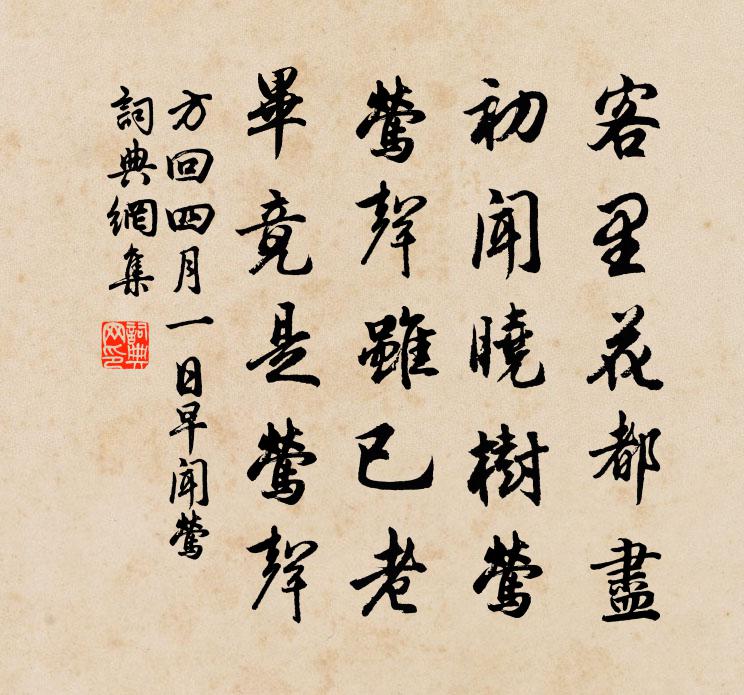 客里花都盡
初聞曉樹鶯
鶯聲雖已老
畢竟是鶯聲
方回四月一日早聞鶯
詞典網集
詞典
网印